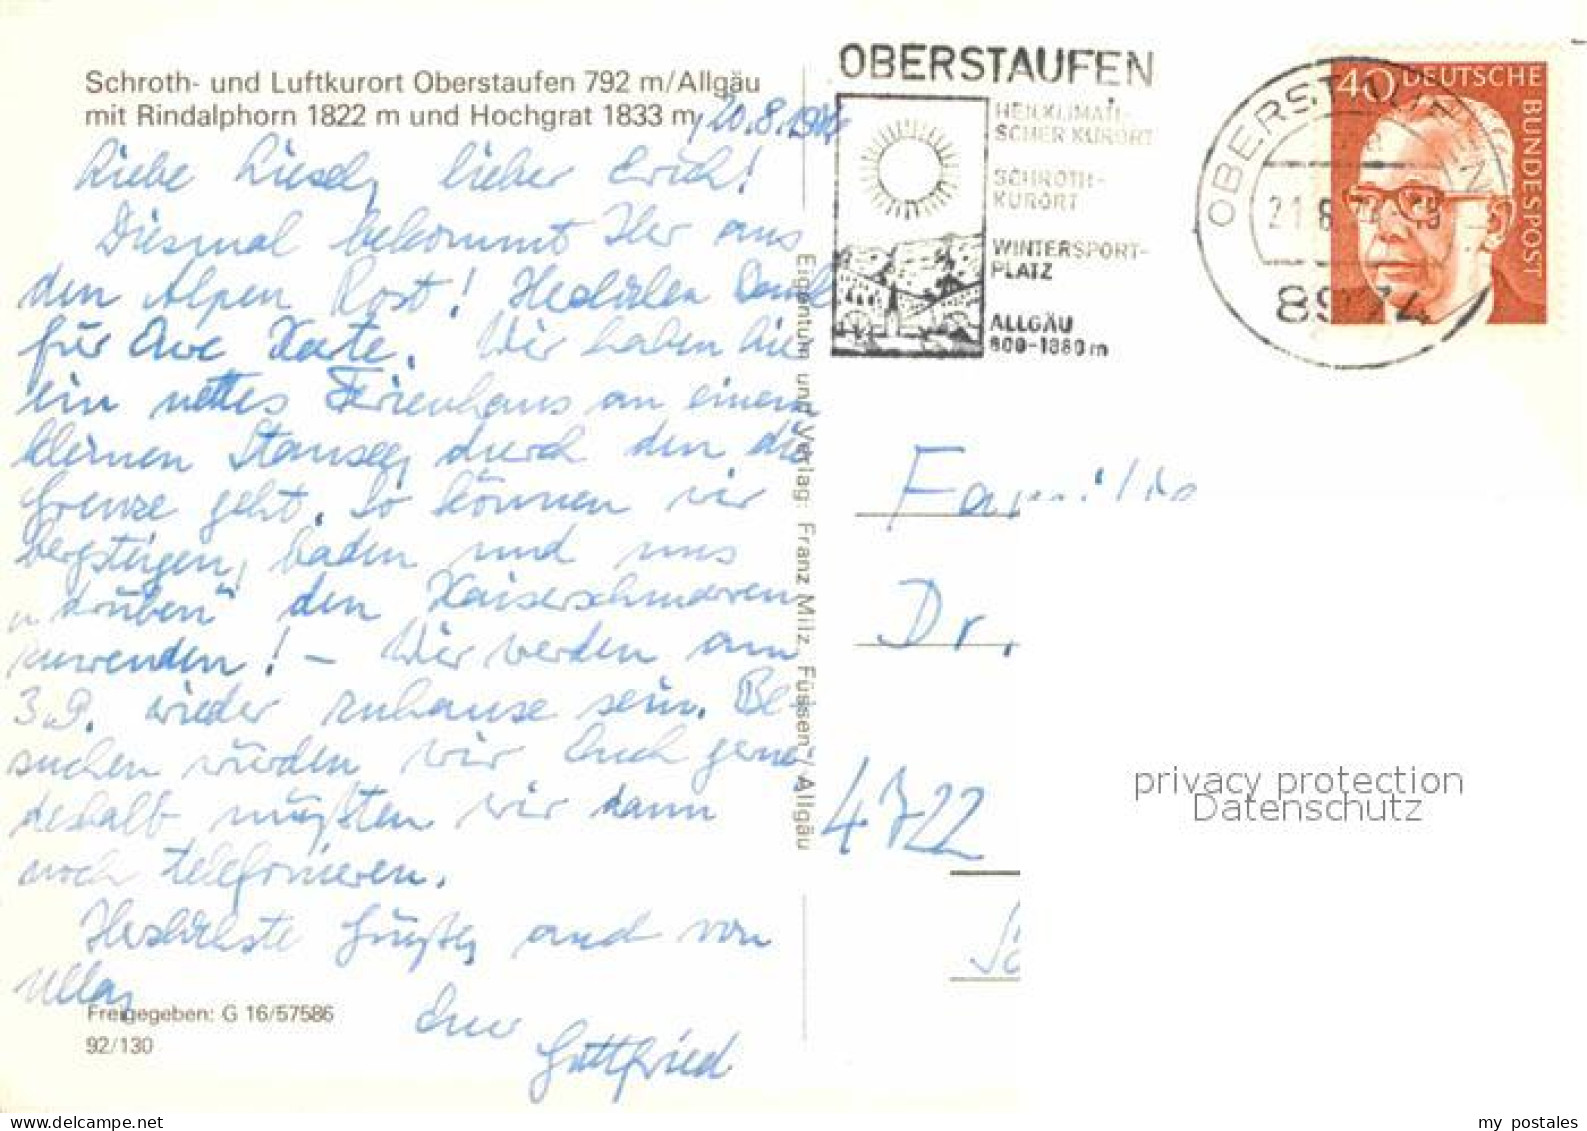 Schroth- und Luftkurort Oberstaufen 792 m/Allgäu
mit Rindalphorn 1822 m und Hochgrat 1833 m
, 20.8.
Liebe Liesel, lieber Erich!
Diesmal bekommt Ihr aus
den Alpen Post! Herzlichen Dank
für Eure Karte. Wir haben hier
ein nettes Ferienhaus an einem
kleinen Stausee, durch den die
Grenze geht. So können wir
bergsteigen, baden und uns
„drüben“ den Kaiserschmarren
zuwenden! – Wir werden am
3.9. wieder zuhause sein. Be
suchen würden wir Euch gerne
deshalb müßten wir dann
noch telefonieren.
Herzlichste Grüße, auch von
Ulla,
Euer
Gottfried
Freigegeben: G 16/57586
92/130
Eigentum und Verlag: Franz Milz, Füssen/Allgäu
OBERSTAUFEN
HEILKLIMATI-
SCHER KURORT
SCHROTH-
KURORT
WINTERSPORT-
PLATZ
ALLGÄU
800-1880 m
OBERSTAUFEN
21.8.
8974
40 DEUTSCHE
BUNDESPOST
Familie
Dr.
4722
privacy protection
Datenschutz
my postales